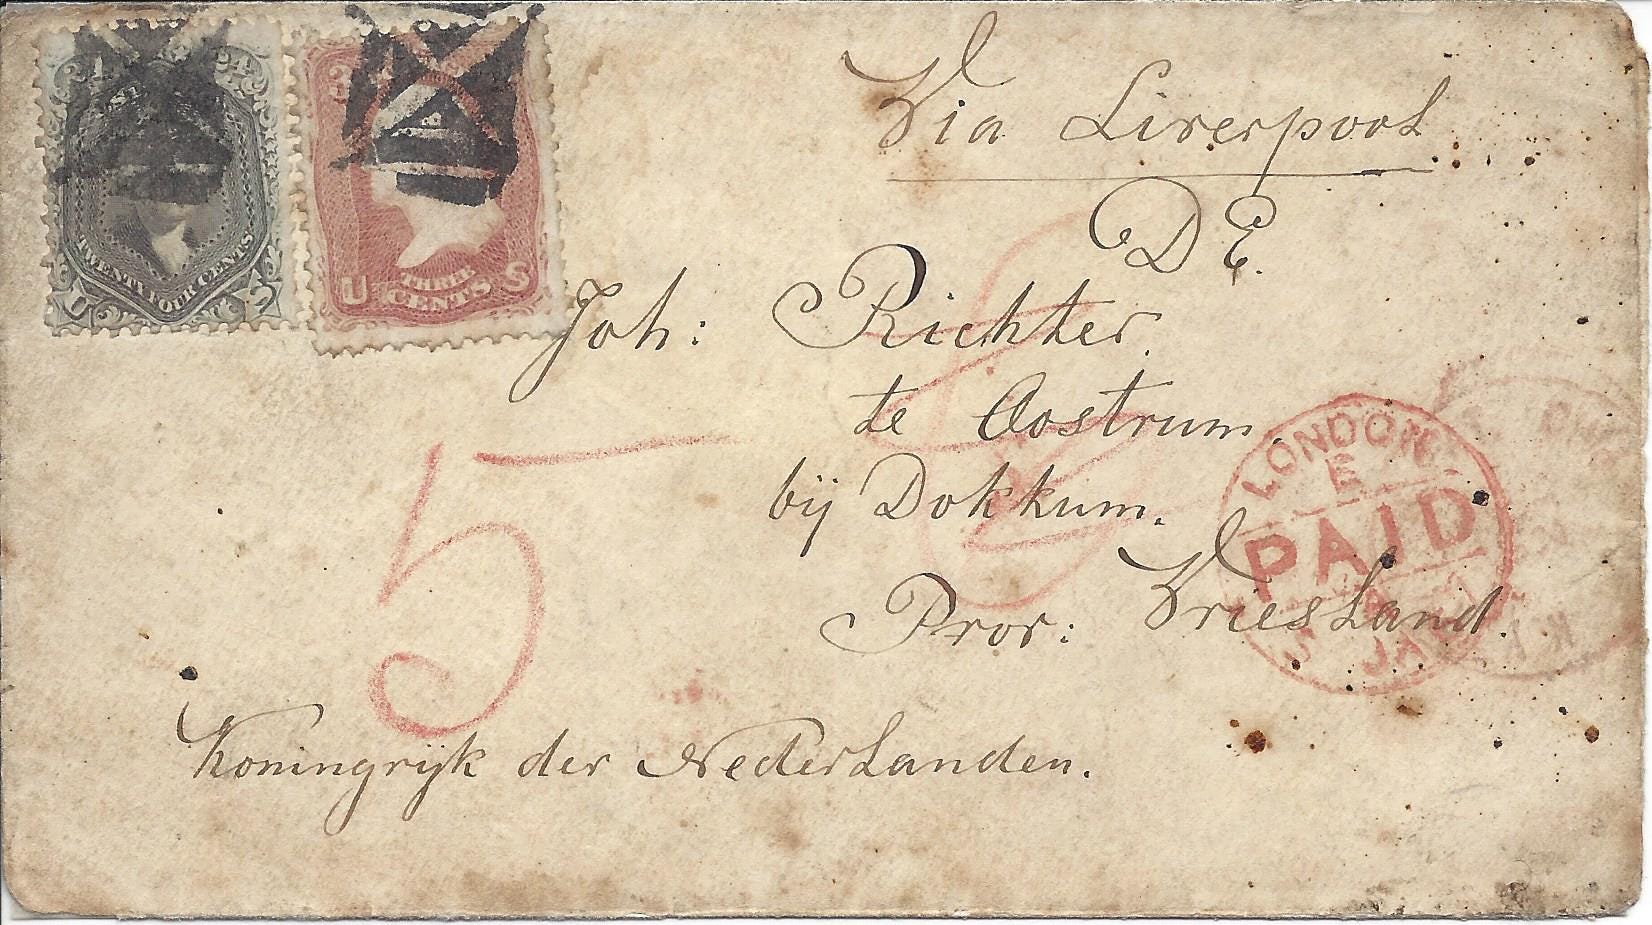 24
TWENTY FOUR CENTS
U S
3
THREE
CENTS
U S
Via Liverpool
D E.
Joh: Richter.
te Oostrum.
bij Dokkum.
Prov: Vriesland.
Koningrijk der Nederlanden.
5
LONDON
E
PAID
JA